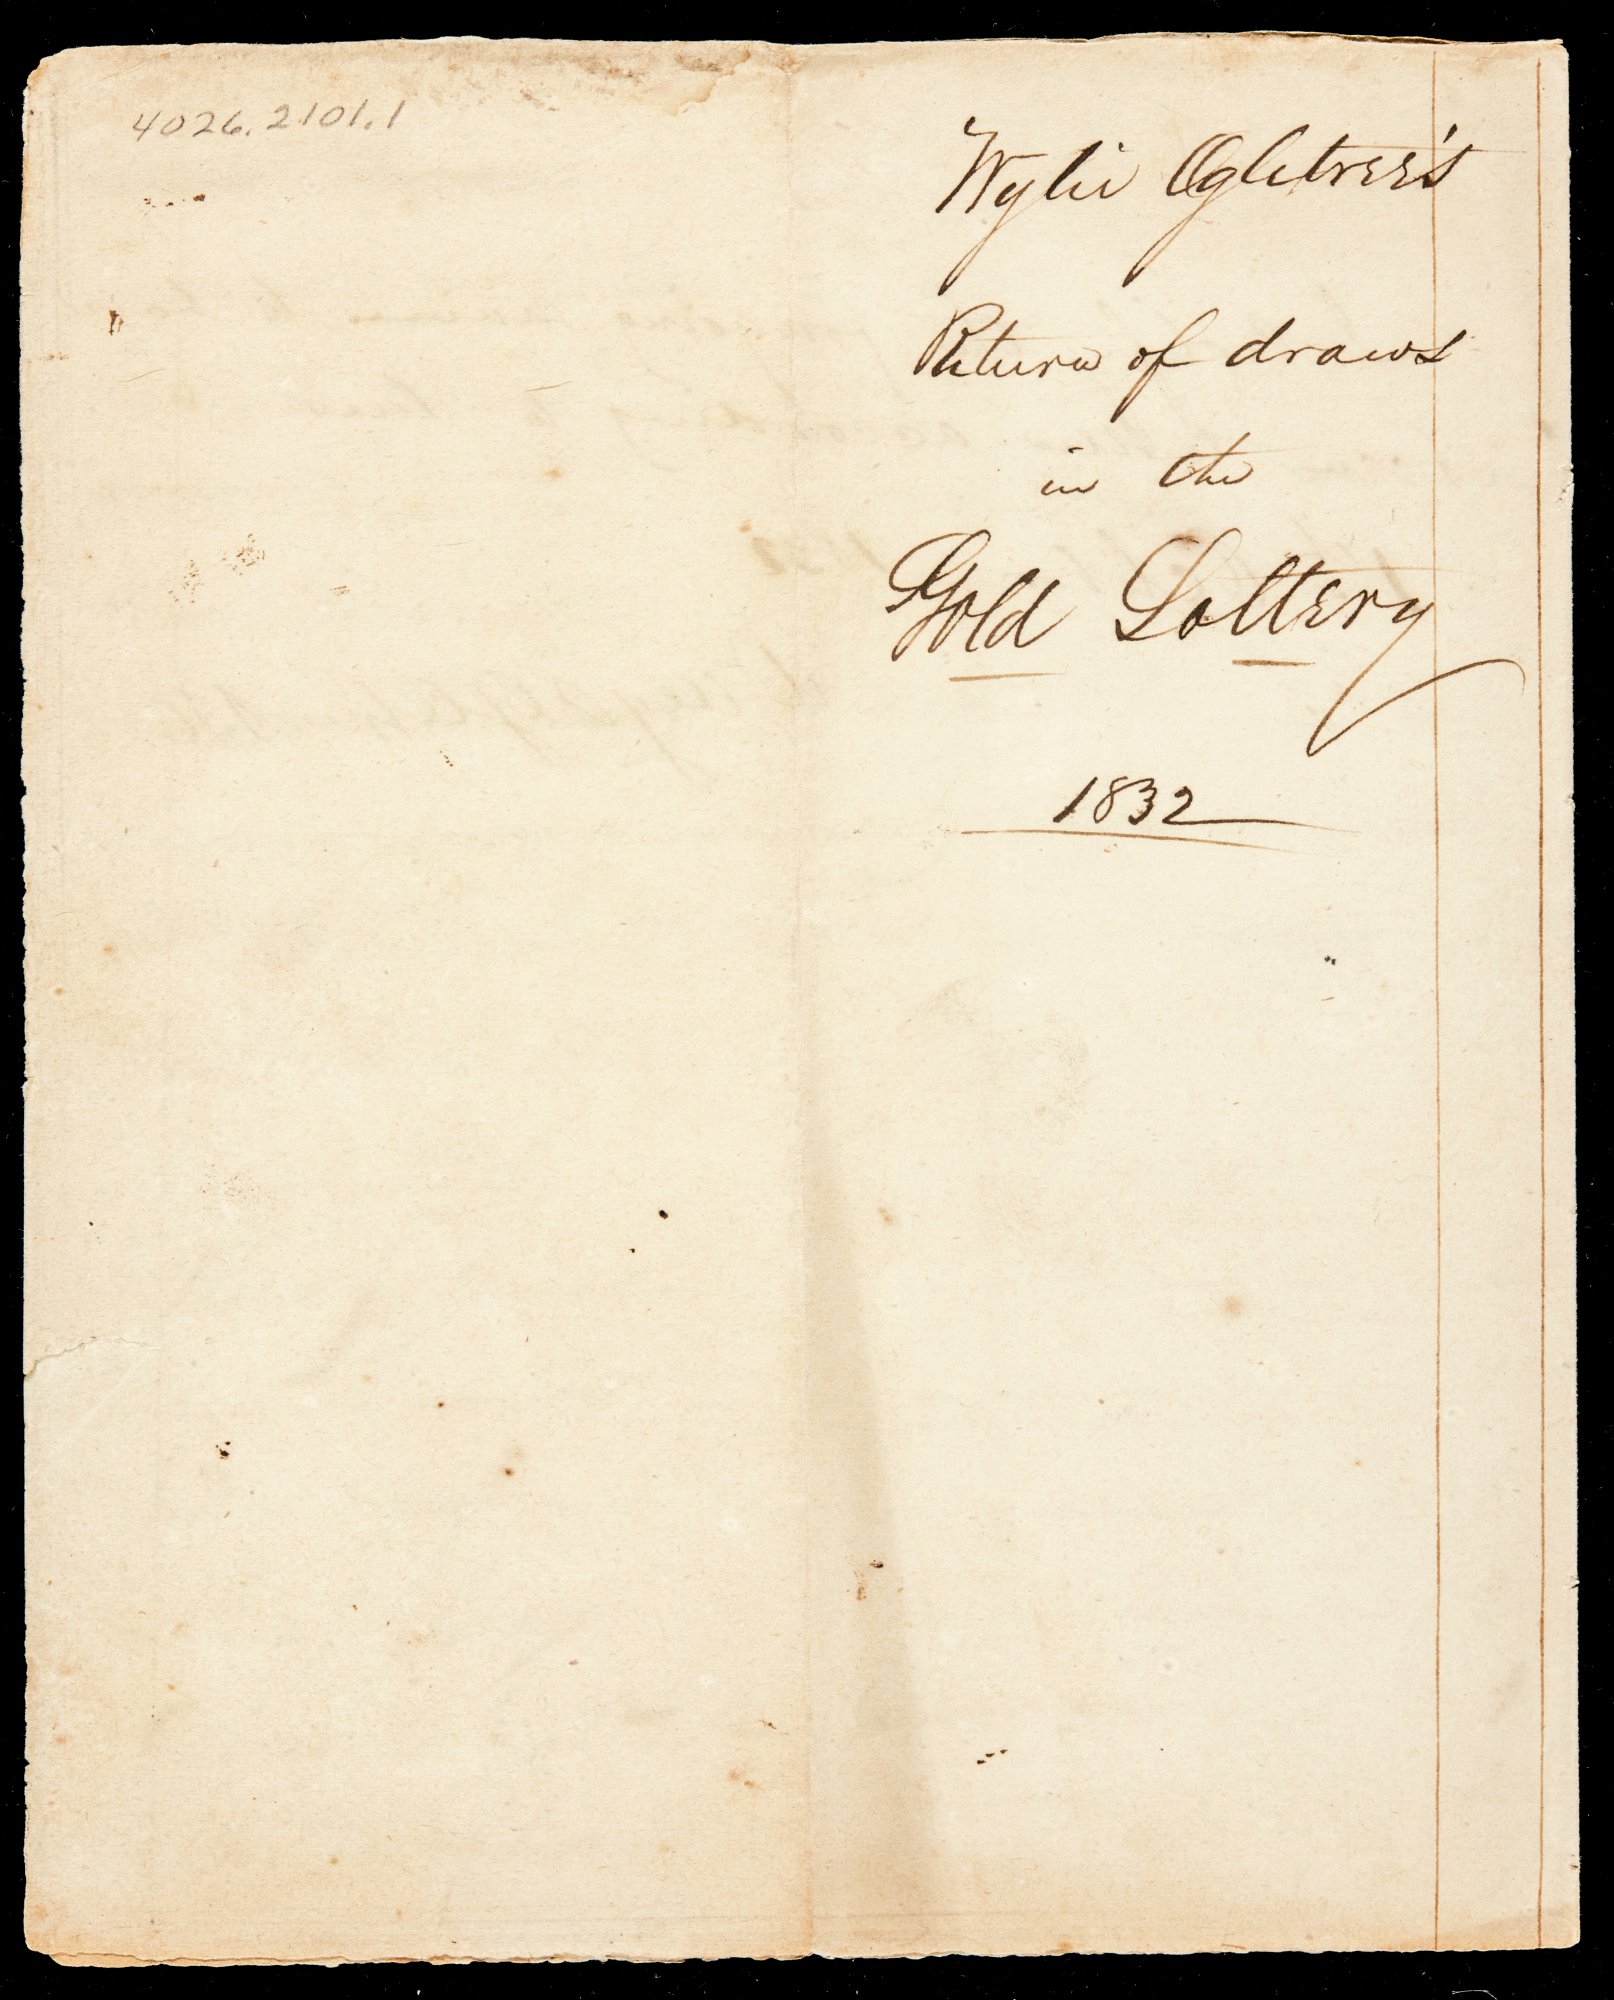 4026.2101.1
Wylie Ogletree's
Return of draws
in the
Gold Lottery
1832